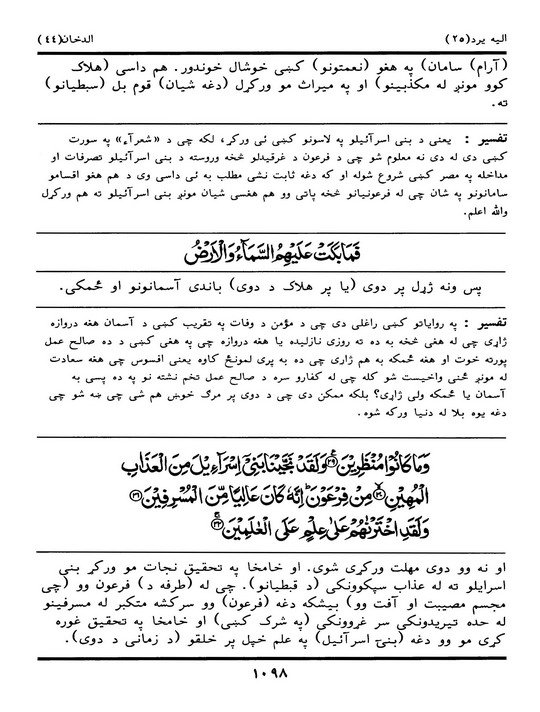 الیه یرد(٢٥) الدخان(٤٤)
(آرام) سامان) په هغو (نعمتونو) کښی خوشال خوندور. هم داسی (هلاک
کوو مونږ له مکذبینو) او په میراث مو ورکړل (دغه شیان) قوم بل (سبطیانو)
ته.
تفسیر : یعنی د بنی اسرآئیلو په لاسونو کښی ئی ورکړ، لکه چی د «شعرآء» په سورت
کښی دی له دی نه معلوم شو چی د فرعون د غرقیدلو څخه وروسته د بنی اسرآئیلو تصرفات او
مداخله په مصر کښی شروع شوله او که دغه ثابت نشی مطلب به ئی داسی وی د هم هغو اقسامو
سامانونو په شان چی له فرعونیانو څخه پاتی وو هم هغسی شیان مونږ بنی اسرآئیلو ته هم ورکړل
والله اعلم.
فَمَا بَكَتْ عَلَيْهِمُ السَّمَآءُ وَالْاَرْضُ
پس ونه ژړل پر دوی (یا پر هلاک د دوی) باندی آسمانونو او ځمکی.
تفسیر : په روایاتو کښی راغلی دی چی د مؤمن د وفات په تقریب کښی د آسمان هغه دروازه
ژاړی چی له هغی څخه به ده ته روزی نازلیده یا هغه دروازه چی په هغی کښی د ده صالح عمل
پورته خوت او هغه ځمکه به هم ژاړی چی ده به پری لمونځ کاوه یعنی افسوس چی هغه سعادت
له مونږ ځنی واخیست شو کله چی له کفارو سره د صالح عمل تخم نشته نو په ده پسی به
آسمان یا ځمکه ولی ژاړی؟ بلکه ممکن دی چی د دوی پر مرګ خوښ هم شی چی ښه شو چی
دغه یوه بلا له دنیا ورکه شوه.
وَمَا كَانُوْا مُنْظَرِيْنَ ﴿٢٩﴾ وَلَقَدْ نَجَّيْنَا بَنِيْٓ اِسْرَآءِيْلَ مِنَ الْعَذَابِ
الْمُهِيْنِ ﴿٣٠﴾ مِنْ فِرْعَوْنَ اِنَّهٗ كَانَ عَالِيًا مِّنَ الْمُسْرِفِيْنَ ﴿٣١﴾
وَلَقَدِ اخْتَرْنٰهُمْ عَلٰى عِلْمٍ عَلَى الْعٰلَمِيْنَ ﴿٣٢﴾
او نه وو دوی مهلت ورکړی شوی. او خامخا په تحقیق نجات مو ورکړ بنی
اسرایلو ته له عذاب سپکوونکی (د قبطیانو). چی له (طرفه د) فرعون وو (چی
مجسم مصیبت او آفت وو) بیشکه دغه (فرعون) وو سرکشه متکبر له مسرفینو
له حده تیریدونکی سر غړوونکی (په شرک کښی) او خامخا په تحقیق غوره
کړی مو وو دغه (بنیٓ اسرآئیل) په علم خپل پر خلقو (د زمانی د دوی).
١٠٩٨